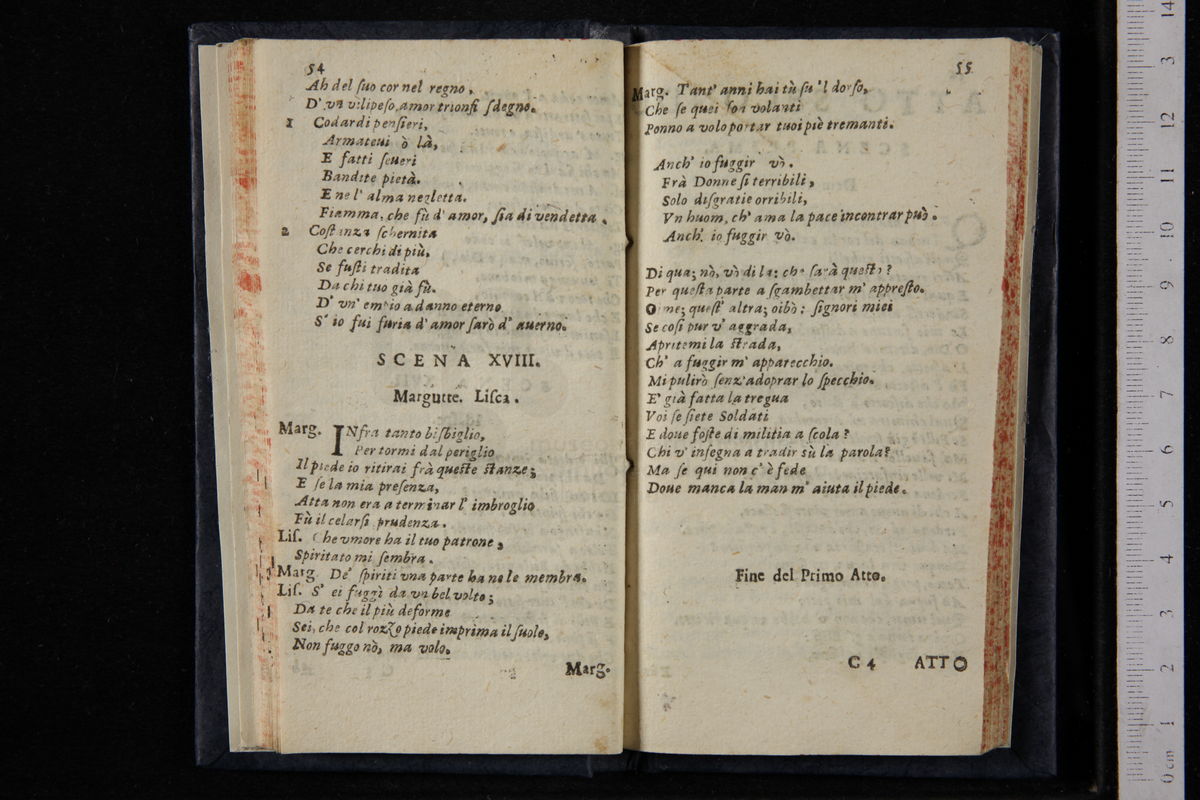 54
Ah del ſuo cor nel regno,
D' vn vilipeſo amor trionfi ſdegno.
1 Codardi penſieri,
Armateui ò là,
E fatti ſeueri
Bandite pietà.
E ne l' alma negletta.
Fiamma, che fù d' amor, ſia di vendetta.
2 Coſtanza ſchernita
Che cerchi di più,
Se fuſti tradita
Da chi tuo già fù.
D' vn' empio a danno eterno
S' io fui furia d' amor ſarò d' auerno.
SCENA XVIII.
Margutte. Liſca.
Marg. INfra tanto biſbiglio,
Per tormi dal periglio
Il piede io ritirai frà queſte ſtanze;
E ſe la mia preſenza,
Atta non era a terminar l' imbroglio
Fù il celarſi prudenza.
Liſ. Che vmore ha il tuo patrone,
Spiritato mi ſembra.
Marg. De' ſpiriti vna parte ha ne le membra.
Liſ. S' ei fuggì da vn bel volto;
Da te che il più deforme
Sei, che col rozzo piede imprima il ſuolo,
Non fuggo nò, ma volo.
Marg.
55
Marg. Tant' anni hai tù ſu 'l dorſo,
Che ſe quei ſon volanti
Ponno a volo portar tuoi piè tremanti.
Anch' io fuggir vò.
Frà Donne ſi terribili,
Solo diſgratie orribili,
Vn huom, ch' ama la pace incontrar può.
Anch' io fuggir vò.
Di qua; nò, vò di la; che ſarà queſto?
Per queſta parte a ſgambettar m' appreſto.
Oime; queſt' altra; oibò: ſignori miei
Se coſi pur v' aggrada,
Apritemi la ſtrada,
Ch' a fuggir m' apparecchio.
Mi pulirò ſenz' adoprar lo ſpecchio.
E' già fatta la tregua
Voi ſe ſiete Soldati
E doue foſte di militia a ſcola?
Chi v' inſegna a tradir sù la parola?
Ma ſe qui non c' è fede
Doue manca la man m' aiuta il piede.
Fine del Primo Atto.
C 4 ATTO
0 cm 1 2 3 4 5 6 7 8 9 10 11 12 13 14